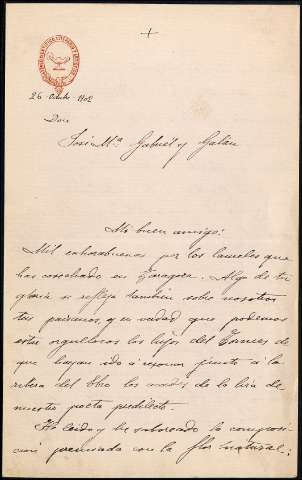 26 Octubre 1902
Don
José Mª Gabriel y Galán
Mi buen amigo:
Mil enhorabuenas por los laureles que
has cosechado en Zaragoza. Algo de tu
gloria se refleja también sobre nosotros
tus paisanos, y en verdad que podemos
estar orgullosos los hijos del Tormes de
que hayan ido á resonar junto á la
ribera del Ebro los acordes de la lira de
nuestro poeta predilecto.
He leido y he saboreado la composi-
ción premiada con la flor natural.;